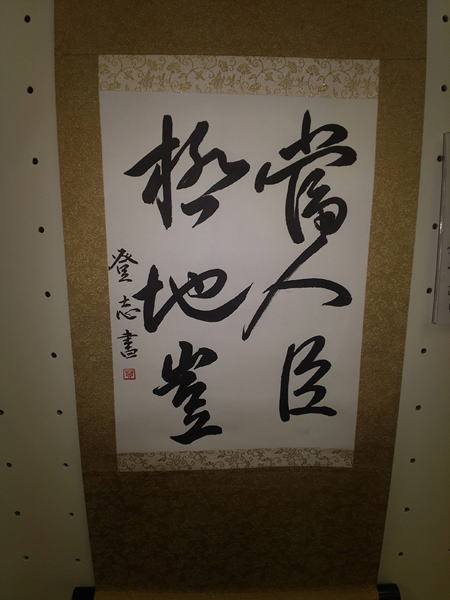 當人臣
極地豈
登志書